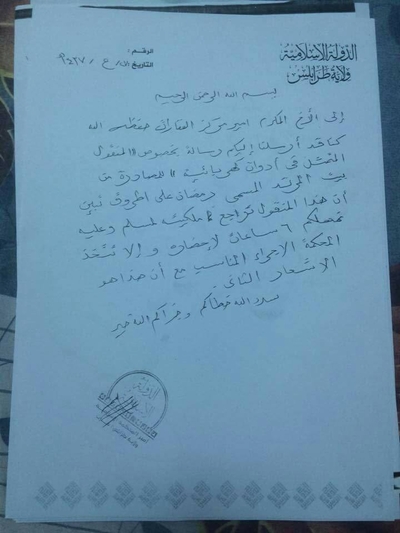 الدولة الإسلامية
ولاية طرابلس
الرقم :
التاريخ :
بسم الله الرحمن الرحيم
إلى الأخ المكرم أمير مركز العقارات حفظك الله
كنا قد أرسلنا إليكم رسالة بخصوص المنقول
المتمثل في أدوات كهربائية المصادرة من
بيت المرتد المسمى رمضان على
أن هذا المنقول تراجع ملكيته لمسلم وعليه
نمهلكم ٦ ساعات لإحضاره وإلا تتخذ
المحكمة الإجراء المناسب مع أن هذا هو
الإشعار الثاني.
سدد الله خطاكم وجزاكم الله خير
الدولة